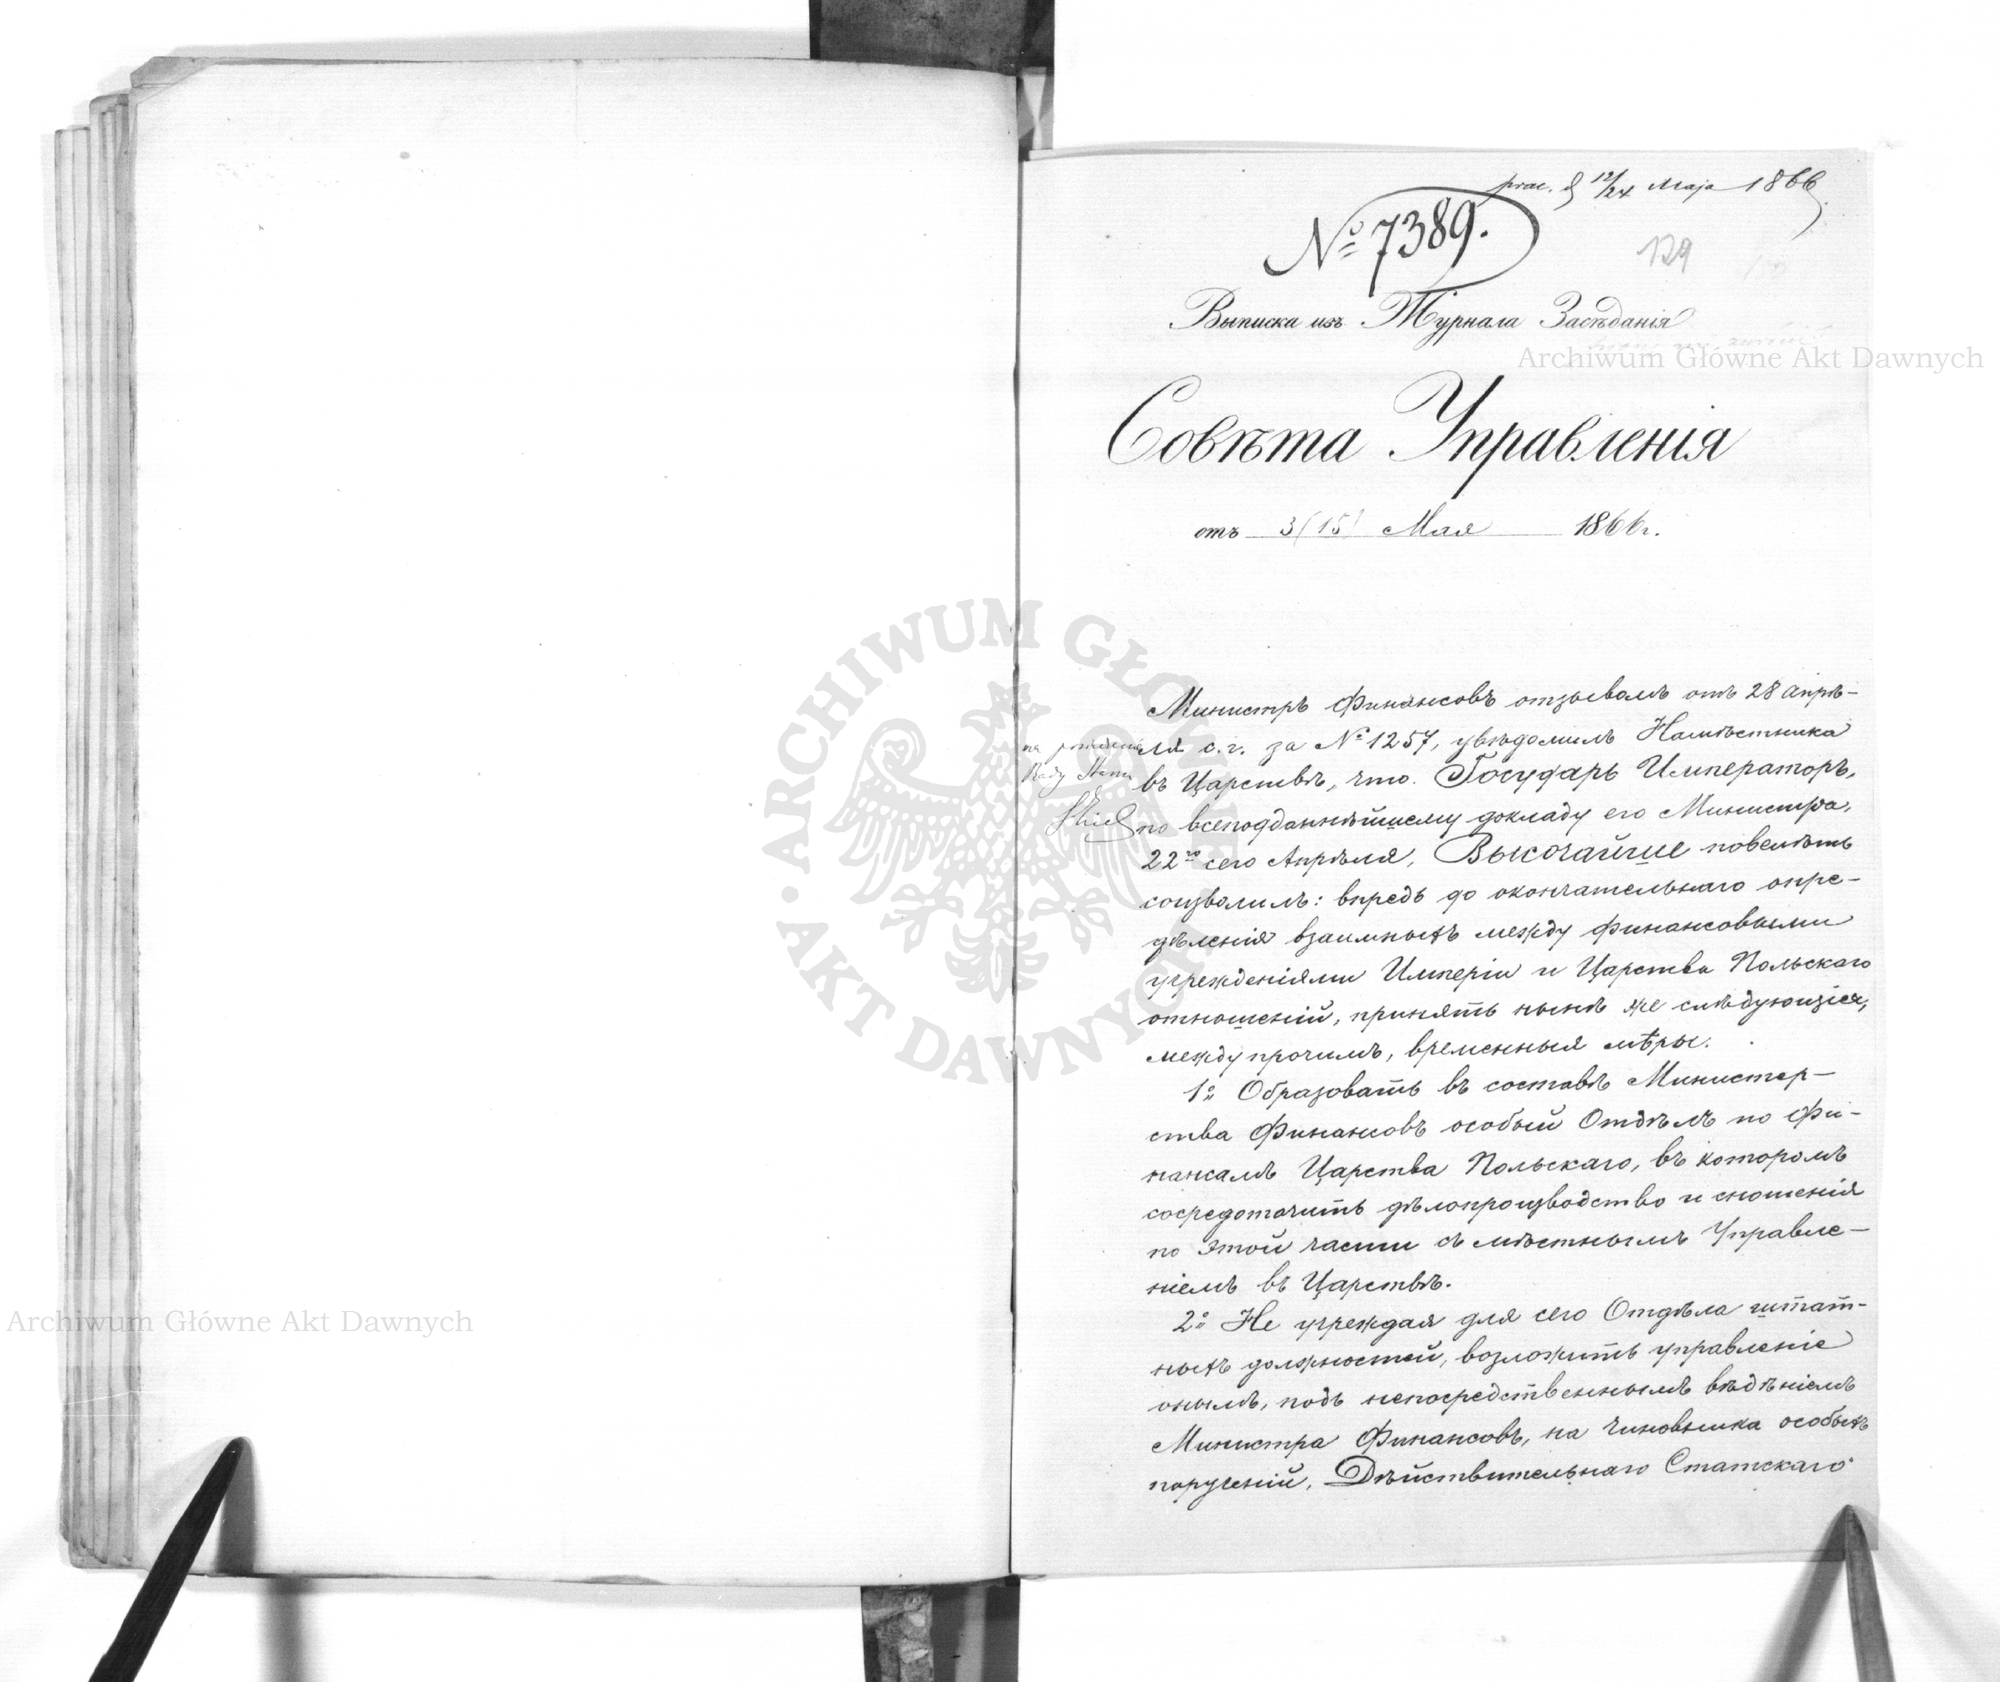 12/24 Maja 1866
№ 7389.
129
Выписка изъ Журнала Засѣданія
Совѣта Управленія
отъ 3 (15) Мая 1866 г.
Министръ Финансовъ отзывомъ отъ 28 Апрѣ-
ля с. г. за № 1257, увѣдомилъ Намѣстника
въ Царствѣ, что Государь Императоръ,
по всеподданнѣйшему докладу его Министра,
22го сего Апрѣля, Высочайше повелѣть
соизволилъ: впредь до окончательнаго опре-
дѣленія взаимныхъ между финансовыми
учрежденіями Имперіи и Царства Польскаго
отношеній, принять нынѣ же слѣдующія,
между прочимъ, временныя мѣры.
1о Образовать въ составѣ Министер-
ства Финансовъ особый Отдѣлъ по Фи-
нансамъ Царства Польскаго, въ которомъ
сосредоточить дѣлопроизводство и сношенія
по этой части съ мѣстнымъ Управле-
ніемъ въ Царствѣ.
2о Не учреждая для сего Отдѣла штат-
ныхъ должностей, возложить управленіе
онымъ, подъ непосредственнымъ вѣдѣніемъ
Министра Финансовъ, на Чиновника особыхъ
порученій, Дѣйствительнаго Статскаго
Archiwum Główne Akt Dawnych
ARCHIWUM GŁÓWNE AKT DAWNYCH
Archiwum Główne Akt Dawnych